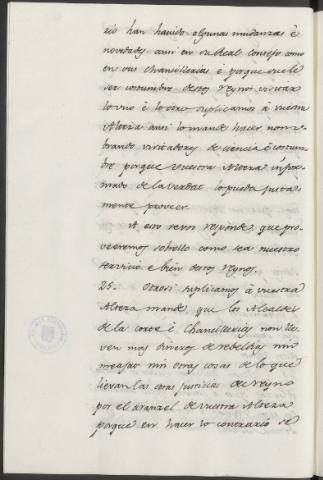 cio han havido algunas mudanzas é
novedades ansi en su Real Consejo como
en sus Chancillerias é porque suele
ser costumbre destos Reynos visitar
lo uno é lo otro suplicamos á vuestra
Alteza ansi lo mande hacer nom-
brando visitadores de ciencia é costum-
bre porque vuestra Alteza infor-
mado de la verdad lo pueda justa-
mente proveer.
A esto se vos responde que pro-
veeremos sobrello como sea nuestro
servicio é bien destos Reynos.
25. Otrosi suplicamos á vuestra
Alteza mande que los Alcaldes
de la corte é Chancillerias non lle-
ven mas dineros de rebeldias nin
meajas nin otras cosas de lo que
llevan las otras justicias del reyno
por el aranzel de vuestra Alteza
porque en hacer lo contrario se